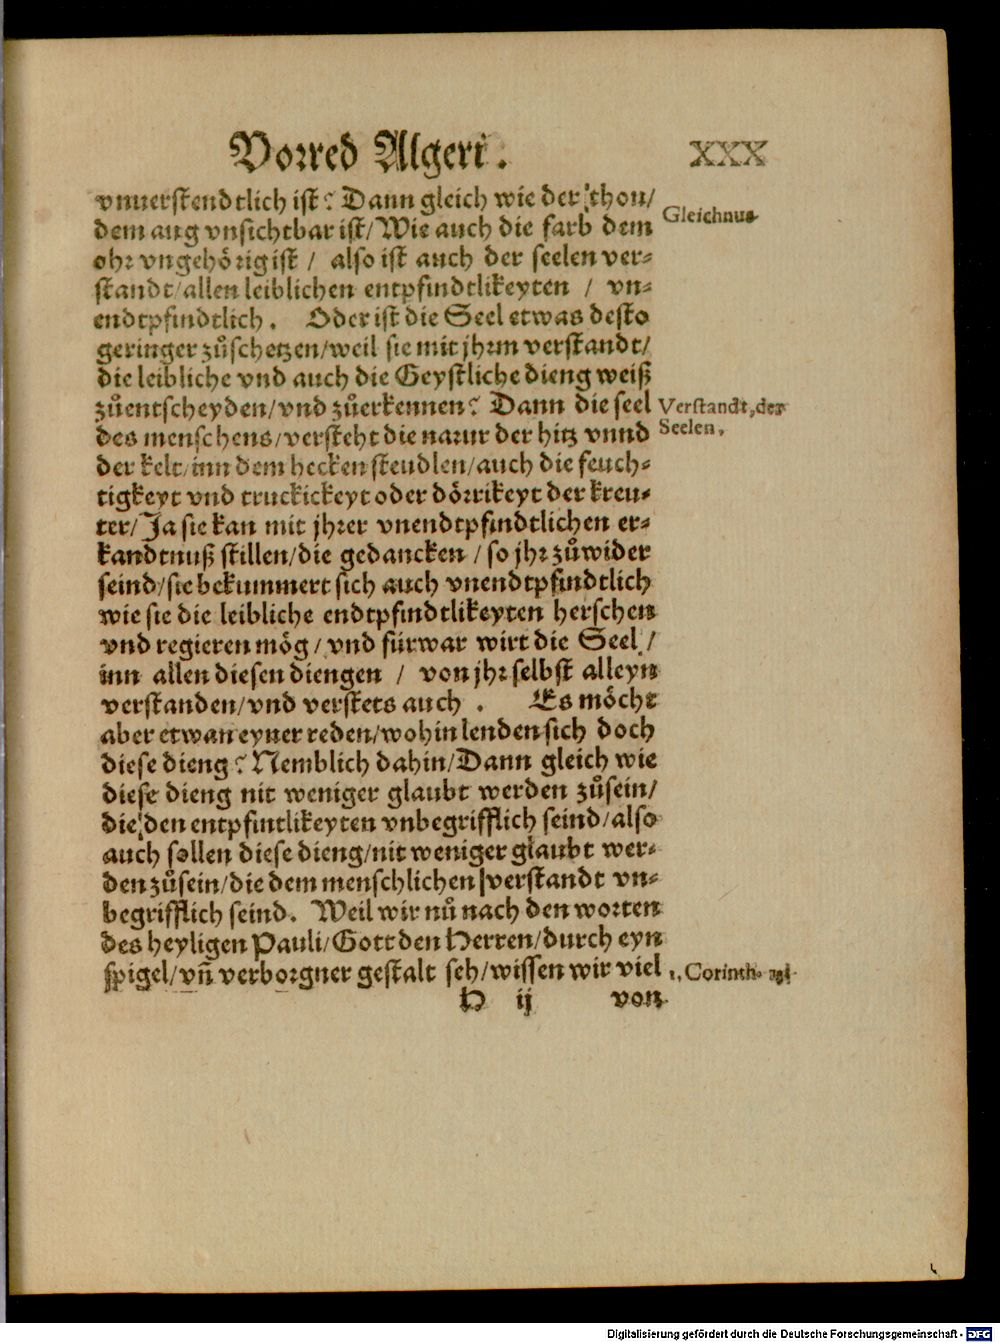 Vorred Algeri.
XXX
vnuerstendtlich ist? Dann gleich wie der thon/
dem aug vnsichtbar ist/Wie auch die farb dem
ohr vngehörig ist / also ist auch der seelen ver-
standt/allen leiblichen entpfindtlikeyten / vn-
endtpfindtlich. Oder ist die Seel etwas desto
geringer zůschetzen/weil sie mit jhrm verstandt/
die leibliche vnd auch die Geystliche dieng weiß
zůentscheyden/vnd zůerkennen? Dann die seel
des menschens/versteht die natur der hitz vnnd
der kelt/inn dem hecken steudlen/auch die feuch-
tigkeyt vnd truckickeyt oder dörrikeyt der kreu-
ter/Ja sie kan mit jhrer vnendtpfindtlichen er-
kandtnuß stillen/die gedancken / so jhr zůwider
seind/sie bekummert sich auch vnendtpfindtlich
wie sie die leibliche endtpfindtlikeyten herschen
vnd regieren mög/vnd fürwar wirt die Seel /
inn allen diesen diengen / von jhr selbst alleyn
verstanden/vnd verstets auch . Es möcht
aber etwan eyner reden/wohin lenden sich doch
diese dieng? Nemblich dahin/Dann gleich wie
diese dieng nit weniger glaubt werden zůsein/
die den entpfintlikeyten vnbegrifflich seind/also
auch sollen diese dieng/nit weniger glaubt wer-
den zůsein/die dem menschlichen verstandt vn-
begrifflich seind. Weil wir nů nach den worten
des heyligen Pauli/Gott den Herren/durch eyn
spigel/vñ verborgner gestalt seh/wissen wir viel
H ij
von
Gleichnus
Verstandt, der
Seelen.
1. Corinth.
Digitalisierung gefördert durch die Deutsche Forschungsgemeinschaft - DFG